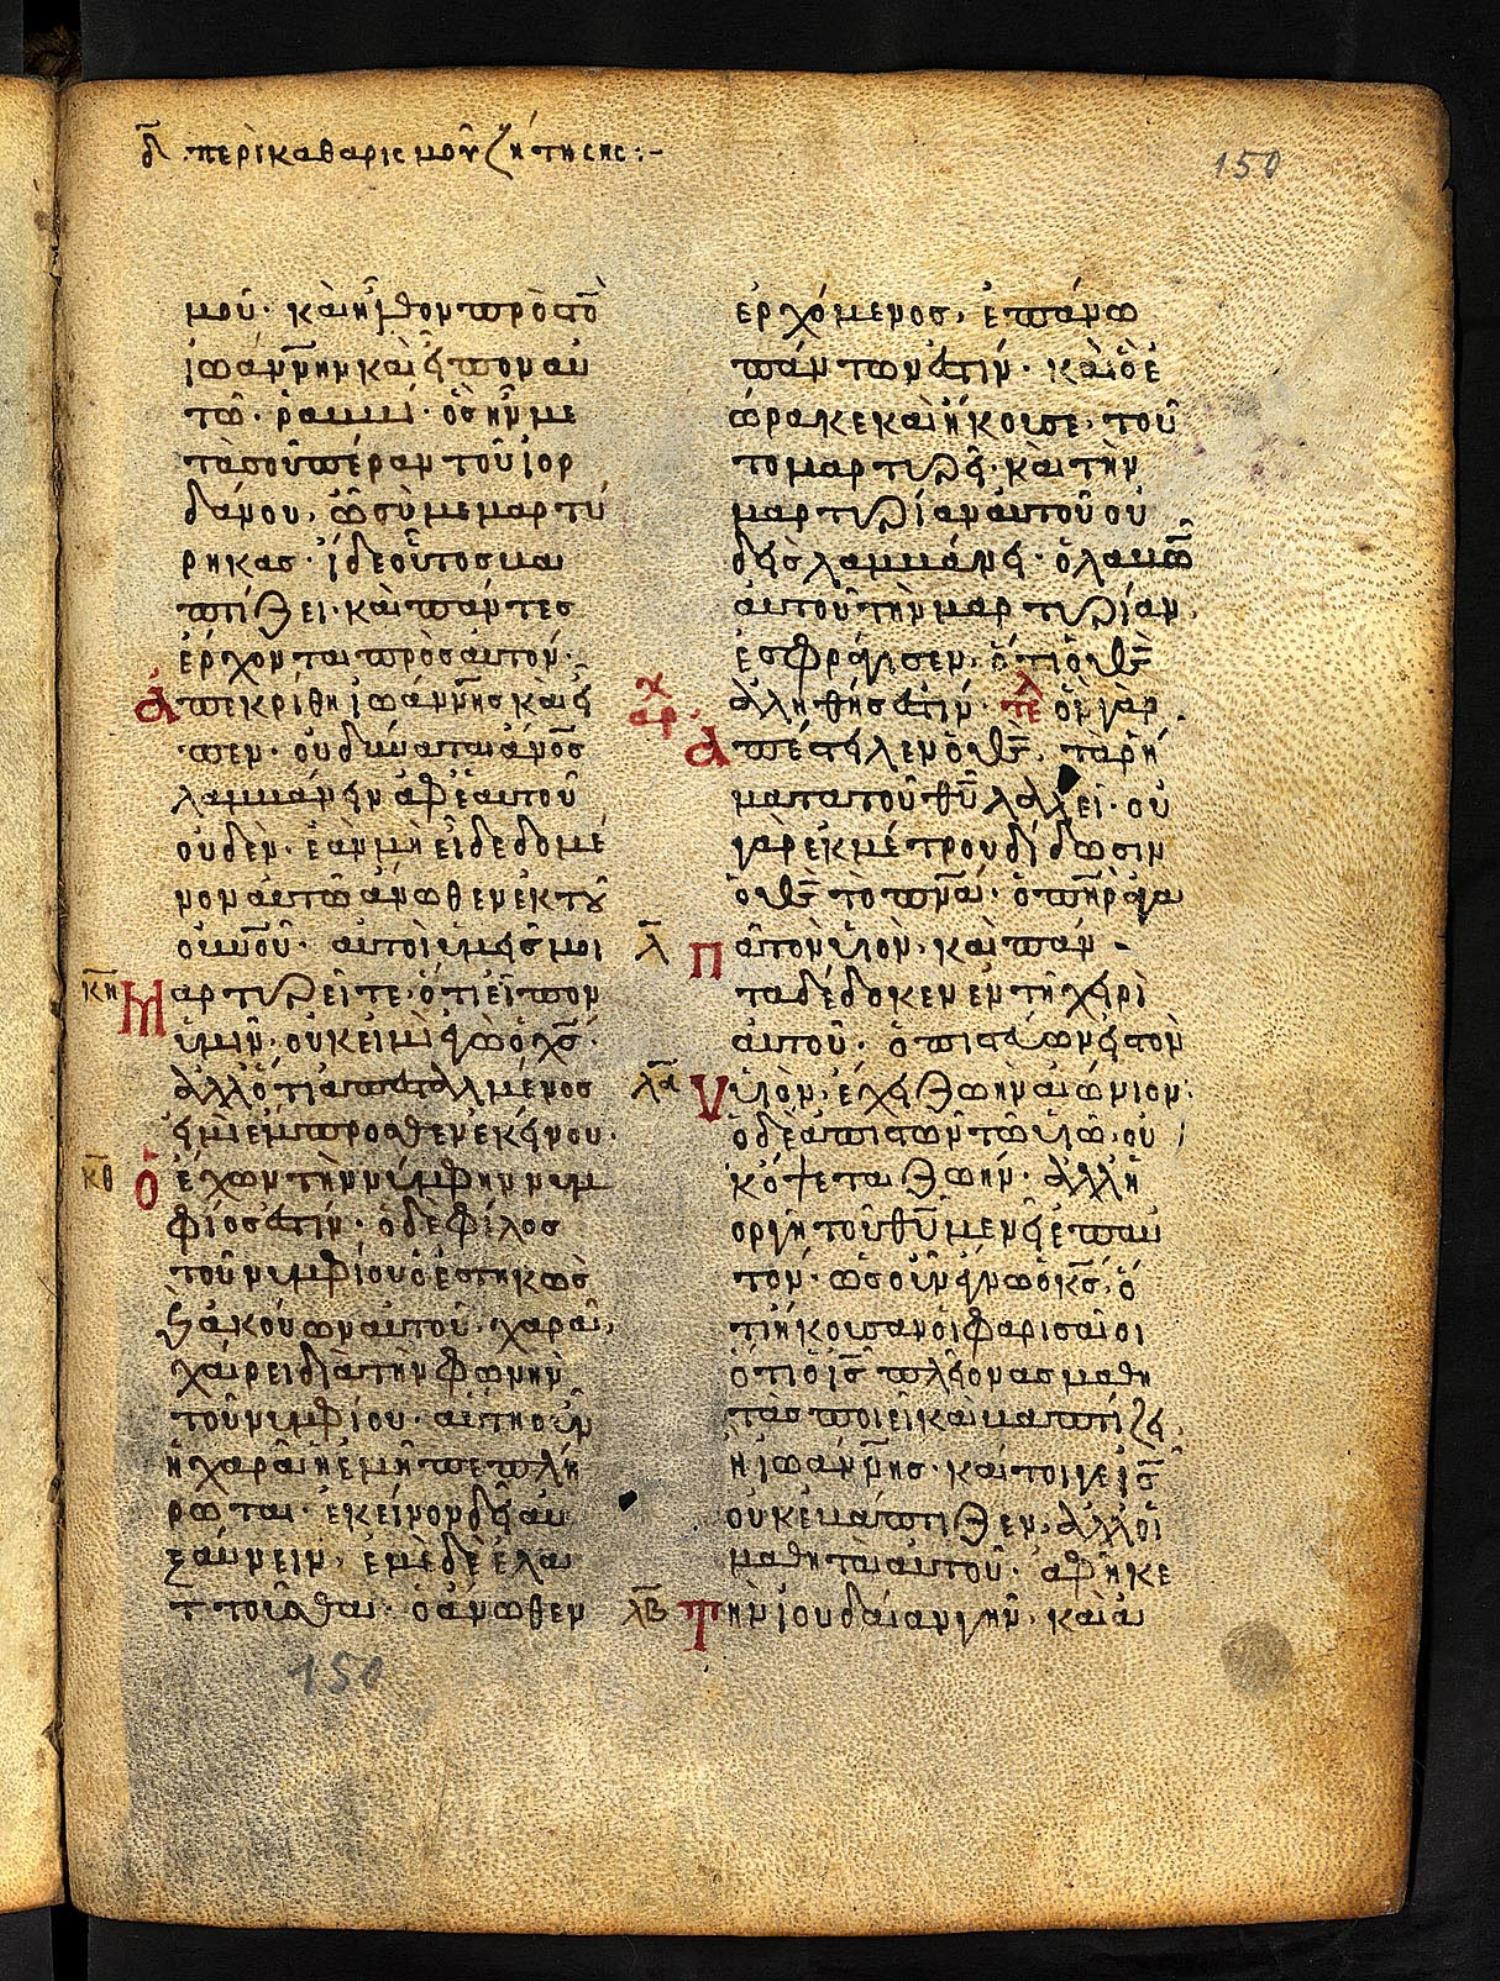 δ̅ . περὶ καθαρισμοῦ ζητήσης :-
150
μοῦ· καὶ ἦλθον πρὸς τὸ̅
ἰωάννην καὶ εἶπον αυ
τῶ· ῥαββί· ὃς ἦν με
τὰ σοῦ πέραν τοῦ ἰορ
δάνου, ὧ σὺ μεμαρτύ
ρηκας· ἴδε οὗτος βα
πτίζει· καὶ πάντες
ἔρχονται πρὸς αυτόν·
Ἀπεκρίθη ἰωάννης καὶ εἶ
πεν· οὐ δύναται ἀνο̅σ
λαμβάνειν ἀφ ἑαυτοῦ
οὐδὲν· ἐὰν μὴ εἶ δεδομέ
νον ἀυτῶ ἄνωθεν ἐκ του
ουνοῦ̅· αυτοὶ ὑμεῖς μοι
κη̅ Μαρτυρεῖτε· ὅτι εἶπον
ὑμῖν· οὐκ εἰμὶ ἐγὼ ὁ χσ̅·
ἀλλ ὅτι ἀπεσταλμένος
εἰμὶ ἔμπροσθεν ἐκείνου·
κθ̅ Ὁ ἔχων τὴν νύμφην νυμ
φίος ἐστίν· ὁ δὲ φίλος
τοῦ νυμφίου ὁ ἑστηκὼς
καὶ ἀκούων αυτοῦ· χαρᾶ,
χαίρει διὰ τὴν φωνὴν
τοῦ νυμφίου· αὕτη οὖν
ἡ χαρὰ ἡ ἐμὴ πεπλή
ρωται· ἐκεῖνον δεῖ αυ
ξάνειν, ἐμὲ δὲ ἐλα
ττοῦσθαι· ὁ ἄνωθεν
150
ἐρχόμενος, ἐπάνω
πάντων ἐστίν· καὶ ὃ ἑ
ώρακε καὶ ἤκουσε, τοῦ
το μαρτυρεῖ· καὶ τὴν
μαρτυρίαν ἀυτοῦ ου
δεὶς λαμβάνει· ὁ λαβὼ̅
ἀυτοῦ τὴν μαρτυρίαν,
ἐσφράγισεν, ὅτι ὁ θσ̅
χ αρ ἀληθής ἐστίν· τελ ὃν γὰρ
Ἀπέστειλεν ὁ θσ̅, τὰ ῥή
ματα τοῦ θυ̅ λαλεῖ· ου
γὰρ ἐκ μέτρου δίδωσιν
ὁ θσ̅ τὸ πνα̅· ὁ πηρ̅ ἀγα
λ̅ Πᾶ τὸν υἱόν, καὶ πάν
τα δέδοκεν ἐν τῆ χειρὶ
ἀυτοῦ· ὁ πιστεύων εἰς τὸν
λα̅ Υἱὸν, ἔχει ζωὴν αἰώνιον·
ὁ δὲ ἀπιστῶν τῶ υἱῶ, ου
κ ὄψεται ζωήν· ἀλλ ἡ
ὀργὴ τοῦ θυ̅ μένει ἐπ αυ
τόν· ὡς οὖν ἔγνω ὁ κσ̅, ὅ
τι ἤκουσαν οἱ φαρισαῖοι
ὅτι ὁ ισ̅ πλείονας μαθη
τὰς ποιεῖ καὶ βαπτίζει
ἢ ἰωάννης· καί τοιγε ισ̅
οὐκ ἐβάπτιζεν, ἀλλ οἱ
μαθηταὶ αυτοῦ· ἀφῆκε
λβ̅ Τὴν ἰουδαίαν γῆν· καὶ α